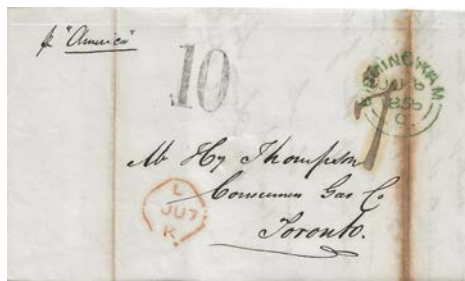 p "America"
10
BIRMINGHAM
JU 6
1856
C
7
Mr Hy Thompson
Consumers Gas Co
Toronto.
L
JU 7
K